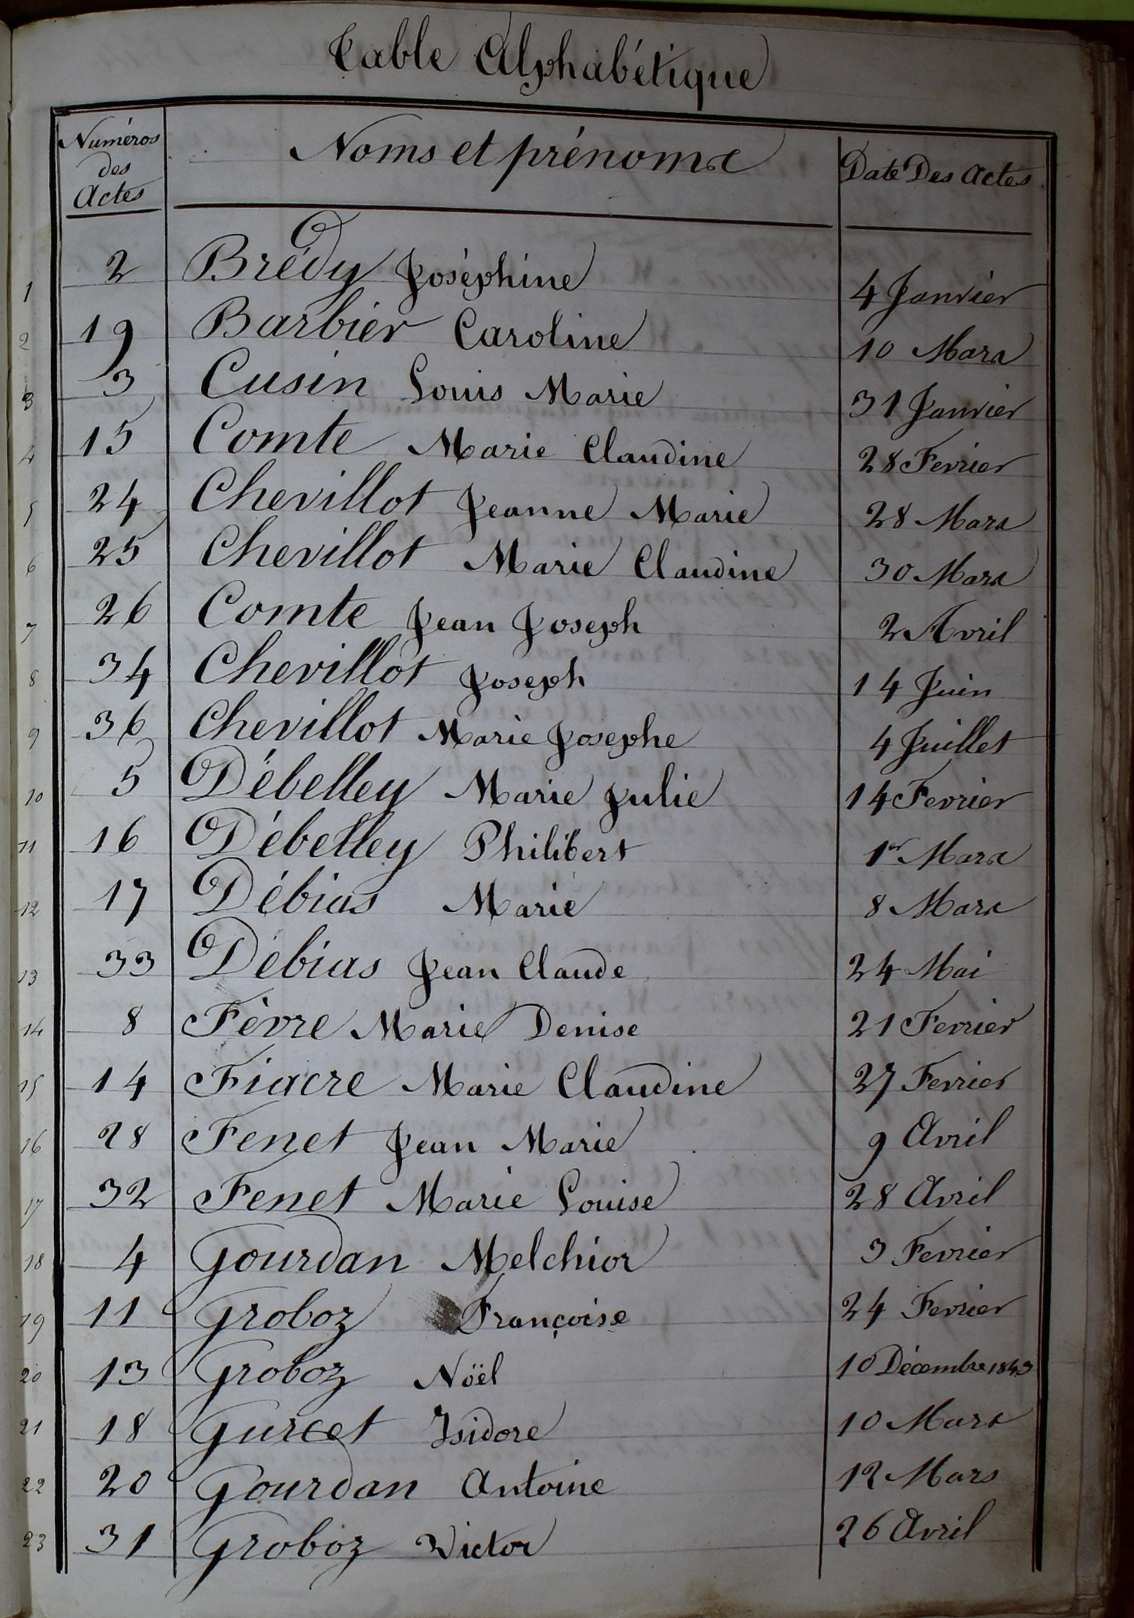 Table Alphabétique
Numéros des Actes Noms et prénoms Date Des Actes
1 2 Brédy Joséphine 4 Janvier
2 19 Barbier Caroline 10 Mars
3 3 Cusin Louis Marie 31 Janvier
4 15 Comte Marie Claudine 28 Fevrier
5 24 Chevillot Jeanne Marie 28 Mars
6 25 Chevillot Marie Claudine 30 Mars
7 26 Comte Jean Joseph 2 Avril
8 34 Chevillot Joseph 14 Juin
9 36 Chevillot Marie Josephe 4 Juillet
10 5 Débelley Marie Julie 14 Fevrier
11 16 Débelley Philibert 1er Mars
12 17 Débias Marie 8 Mars
13 33 Débias Jean Claude 24 Mai
14 8 Fèvre Marie Denise 21 Fevrier
15 14 Fiacre Marie Claudine 27 Fevrier
16 28 Fenet Jean Marie 9 Avril
17 32 Fenet Marie Louise 28 Avril
18 4 Gourdan Melchior 3 Fevrier
19 11 Groboz Françoise 24 Fevrier
20 13 Groboz Noël 10 Décembre 1843
21 18 Gurcet Isidore 10 Mars
22 20 Gourdan Antoine 12 Mars
23 31 Groboz Victor 26 Avril